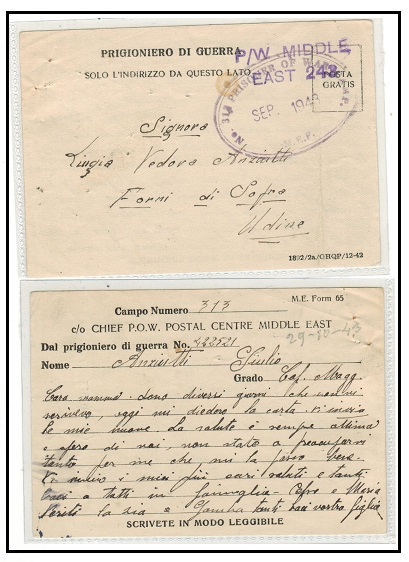 PRIGIONIERO DI GUERRA
SOLO L'INDIRIZZO DA QUESTO LATO
P/W MIDDLE
EAST 248
POSTA
GRATIS
PRISONER OF WAR
SEP. 194
Signora
Vedova
Forni di Sopra
Udine
1892/2a/GHQP/12-42
Campo Numero 313
M.E. Form 65
c/o CHIEF P.O.W. POSTAL CENTRE MIDDLE EAST
29-10-43
Dal prigioniero di guerra No. 222521
Nome Giulio
Grado Cap. Magg.
Cara mamma. sono diversi giorni che non
scrivevo, oggi mi diedero la carta.
le mie nuove. La salute è sempre ottima
e spero di voi, non state a
tanto per me che me la passo bene.
i miei più cari saluti e tanti
baci a tutti in famiglia e Maria
la zia e tanti baci vostro figlio
SCRIVETE IN MODO LEGGIBILE